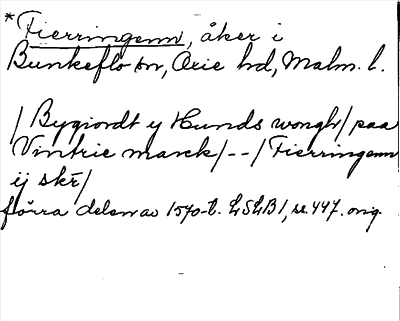 *Fierringenn, åker i
Bunkeflo sn, Oxie hd, Malm. l.
/Bygiordt ij Hunds wongh/ paa
Vintrie marck/--/Fierringenn
ij skr̄/
förra delen av 1570-t. LSLB1, s. 447. orig.